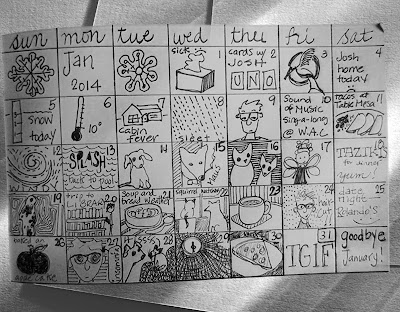 sun mon tue wed thu fri sat
Jan
2014
sick 1
cards w/ 2
JOSH
UNO
3
4
Josh
home
today
5
snow
today
6
10°
7
cabin
fever
8
sleet
9
Sound 10
of Music
sing-a-long
@ W.A.C
Tacos at 11
Table Mesa
12
13
SPLASH
back to pool
14
15
16
17
18
for dinner
yum
19
trip to 20
soup and 21
bread
squirrel 22
23
24
Hair
cut
25
date
night
Rolando's
baked an 26
27
28
29
30
31
TGIF
goodbye
January!